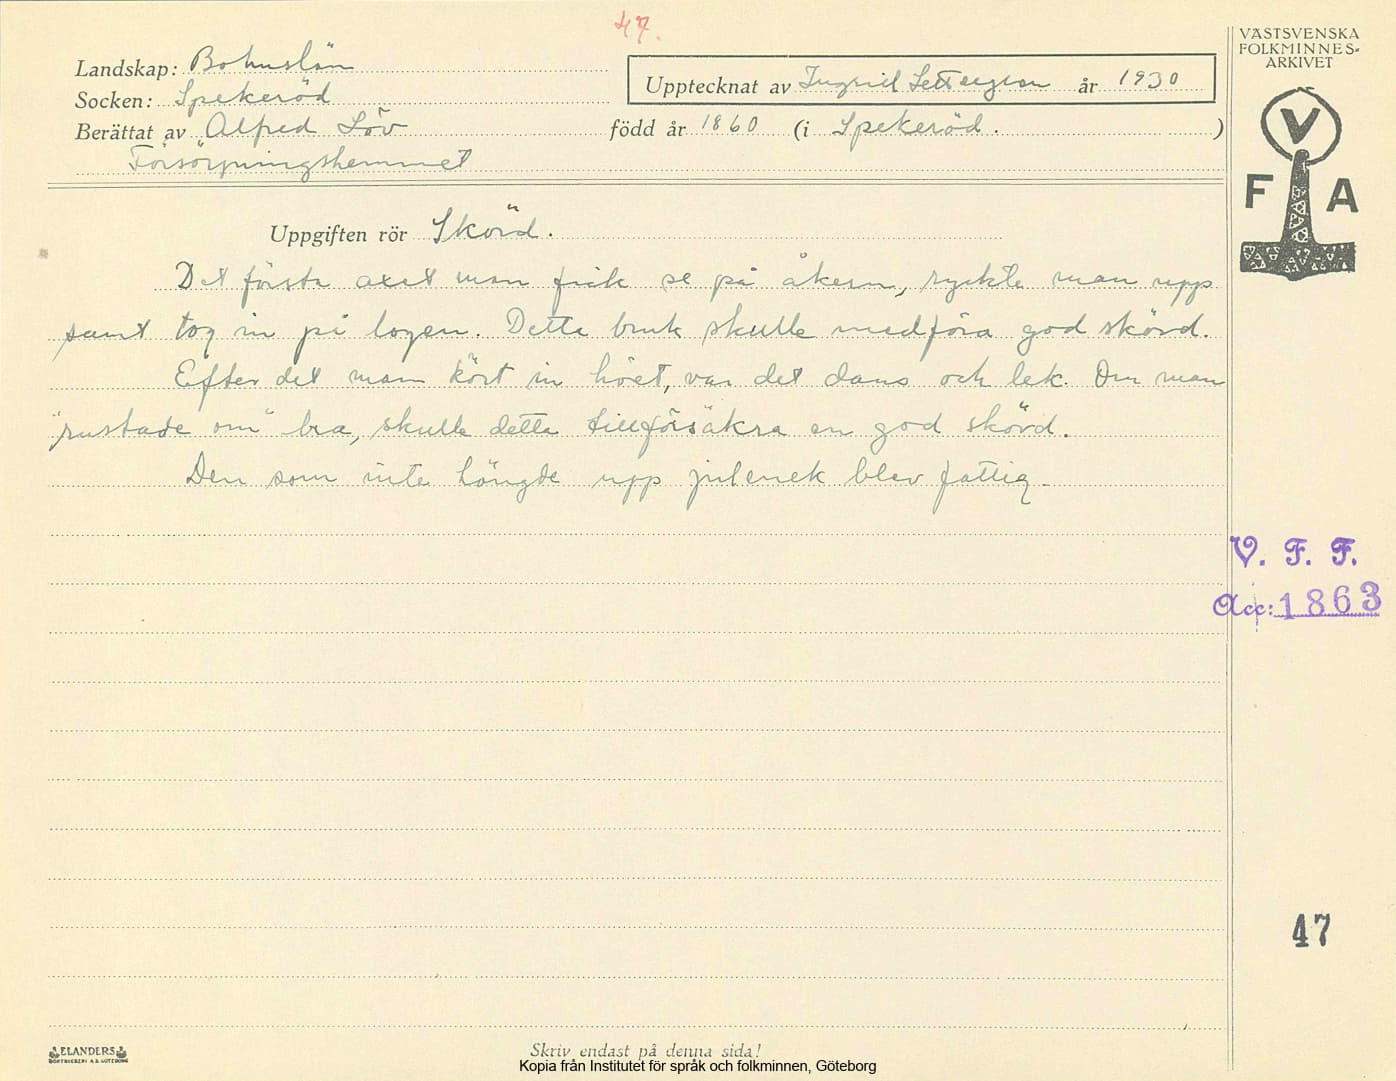 47.
VÄSTSVENSKA
FOLKMINNES-
ARKIVET
Landskap: Bohuslän
Socken: Spekeröd
Upptecknat av Ingrid år 1930
Berättat av Alfred Löv född år 1860 (i Spekeröd. )
Försörjningshemmet
V
F A
Uppgiften rör Skörd.
Det första axet man fick se på åkern, ryckte man upp
samt tog in på logen. Detta bruk skulle medföra god skörd.
Efter det man kört in höet, var det dans och lek. Om man
"rustade om" bra, skulle detta tillförsäkra en god skörd.
Den som inte hängde upp julenek blev fattig.
V. F. F.
Acc: 1863
47
ELANDERS
BOKTRYCKERI A.B. GÖTEBORG
Skriv endast på denna sida!
Kopia från Institutet för språk och folkminnen, Göteborg